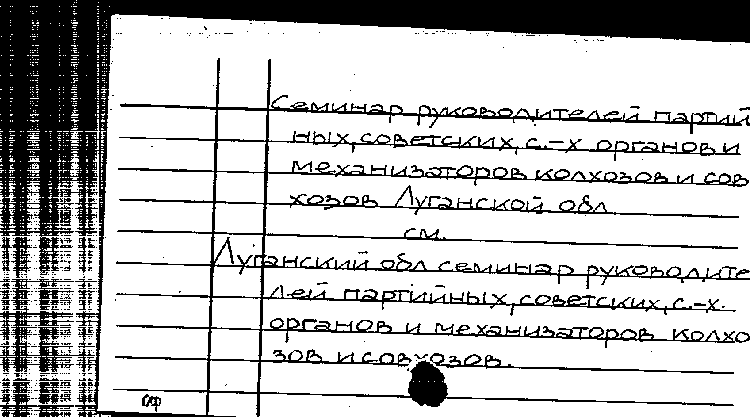 Семинар руководителей партий
ных, советских, с.-х органов и
механизаторов колхозов и сов
хозов Луганской обл
см.
Луганский обл семинар руководите
лей партийных, советских, с.-х.
органов и механизаторов колхо
зов и совхозов.